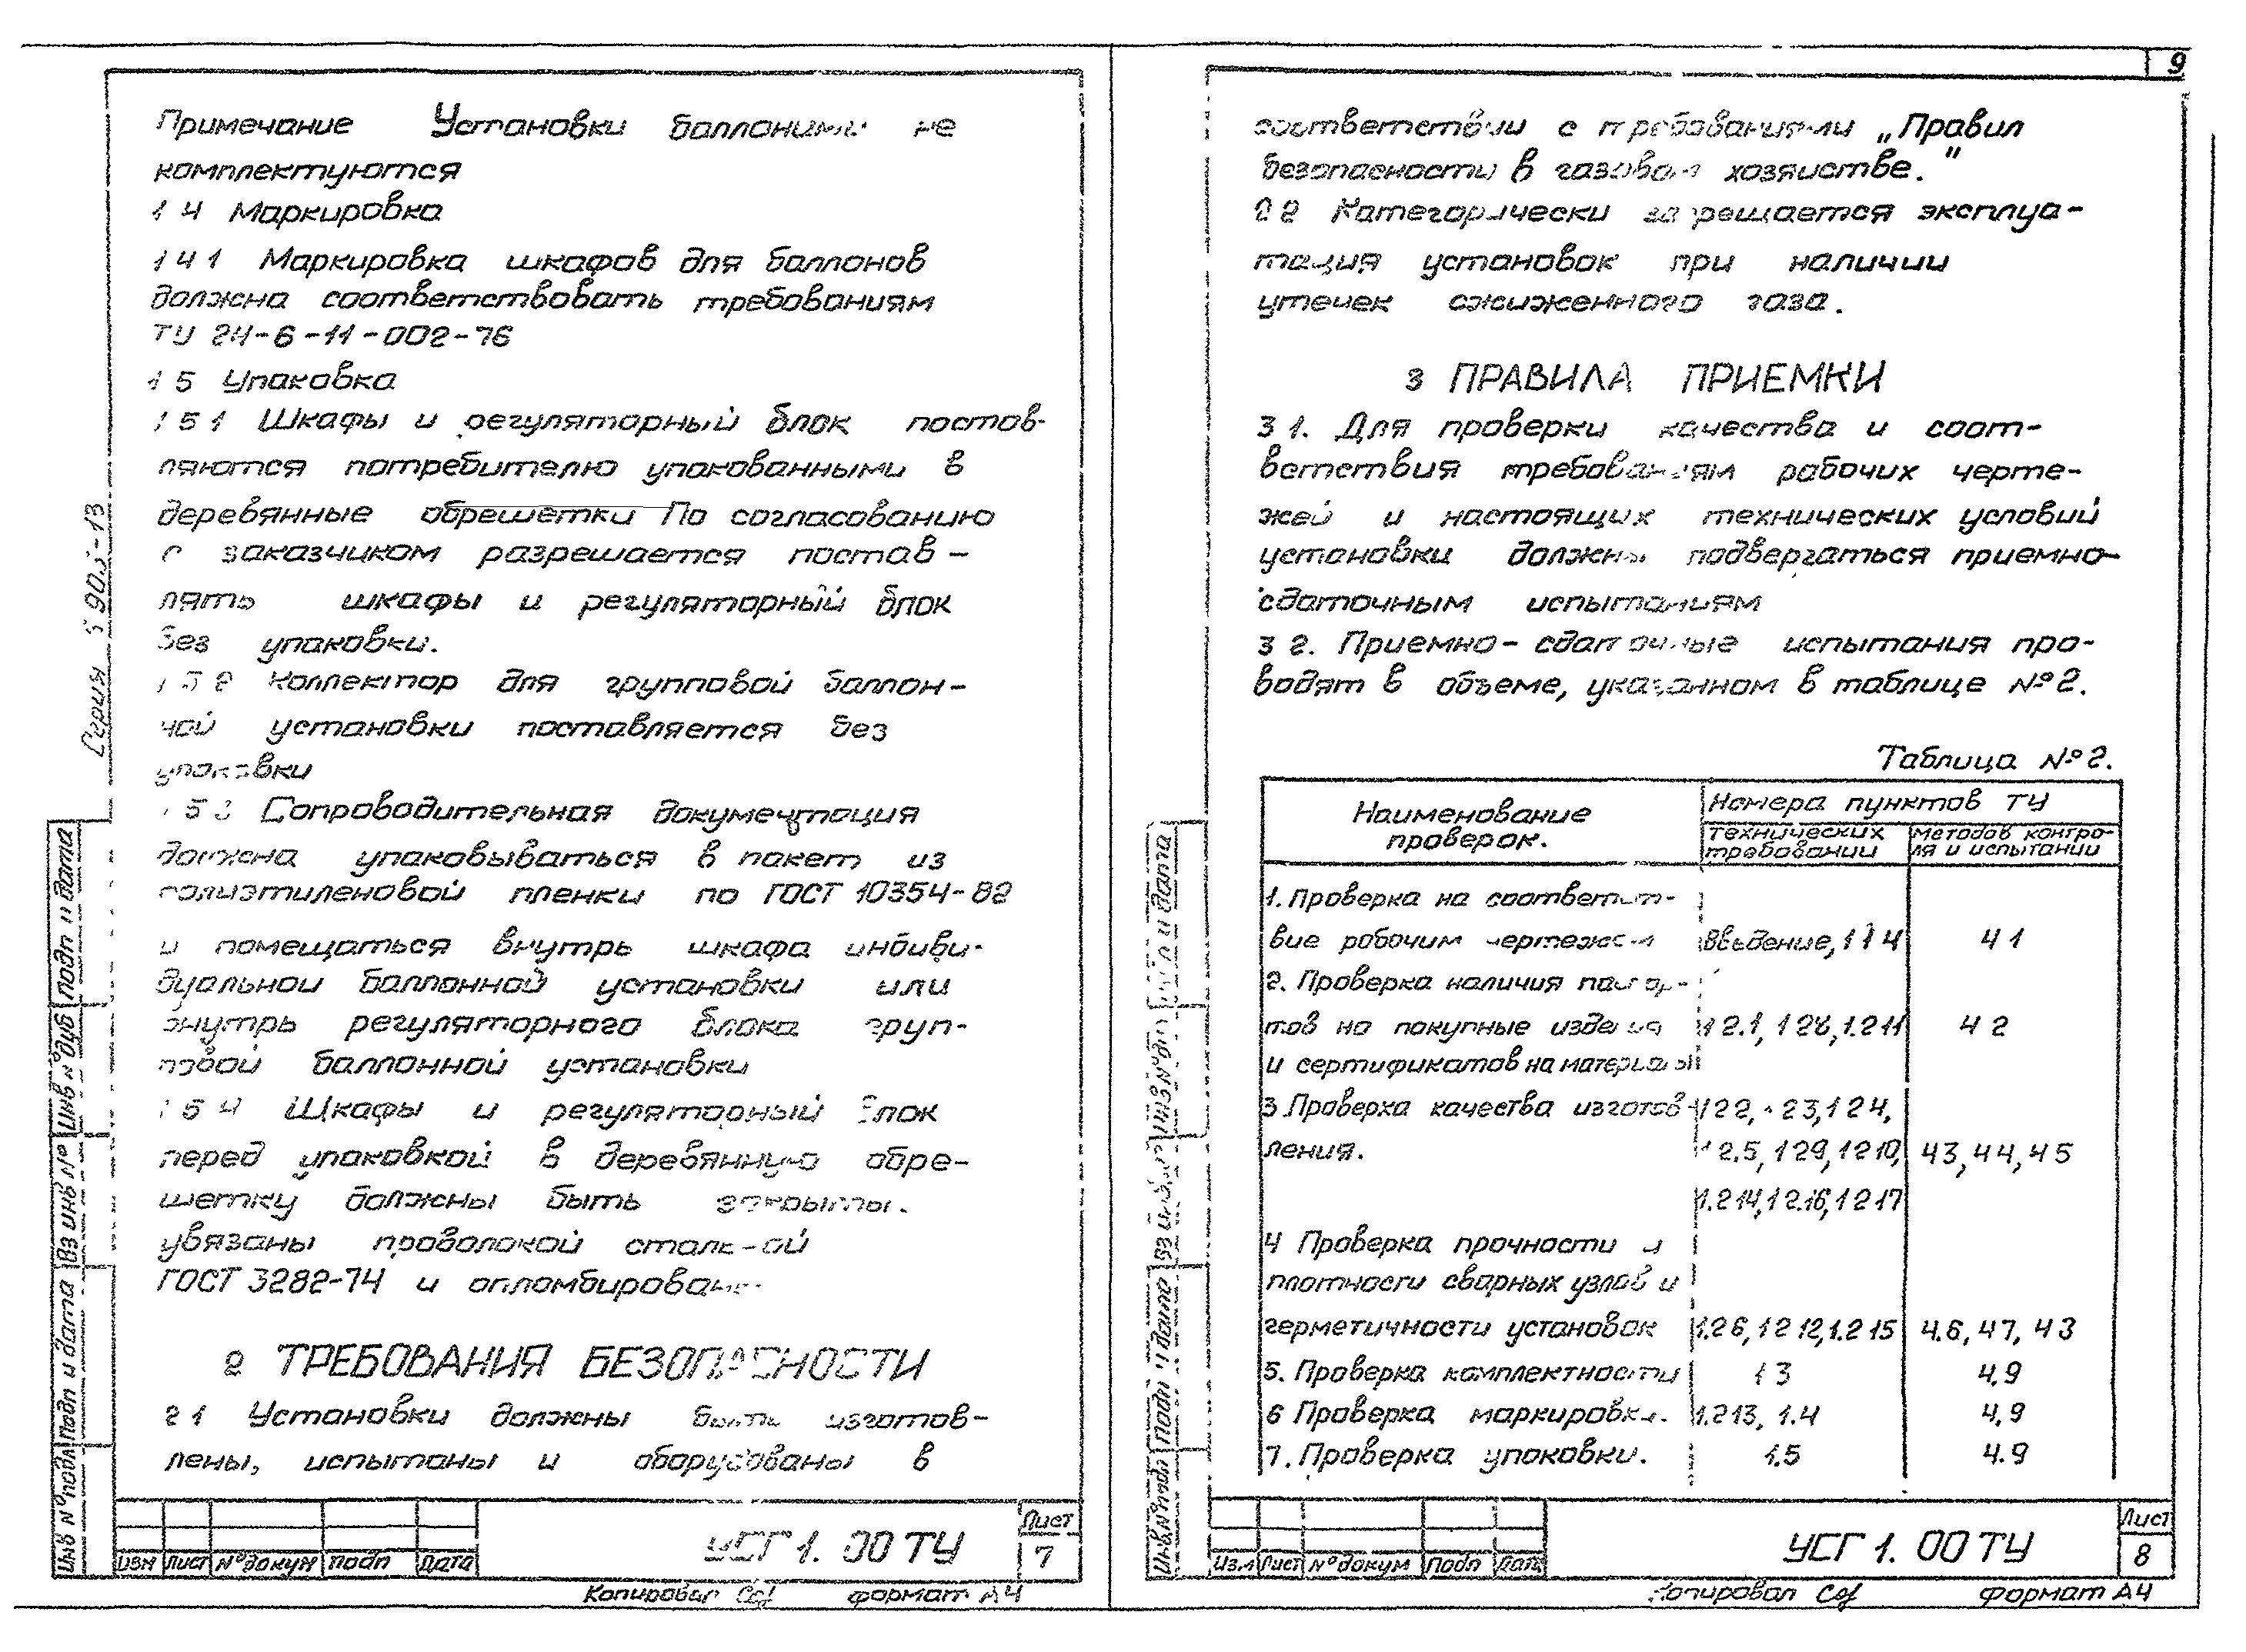 9
Примечание Установки баллонами не
комплектуются
1 4 Маркировка
1 4 1 Маркировка шкафов для баллонов
должна соответствовать требованиям
ТУ 24-6-11-002-76
1 5 Упаковка
1 5 1 Шкафы и регуляторный блок постав-
ляются потребителю упакованными в
деревянные обрешетки По согласованию
с заказчиком разрешается постав-
лять шкафы и регуляторный блок
без упаковки.
1 5 2 Коллектор для групповой баллон-
ной установки поставляется без
упаковки
1 5 3 Сопроводительная документация
должна упаковываться в пакет из
полиэтиленовой пленки по ГОСТ 10354-82
и помещаться внутрь шкафа индиви-
дуальной баллонной установки или
внутрь регуляторного блока груп-
повой баллонной установки
1 5 4 Шкафы и регуляторный блок
перед упаковкой в деревянную обре-
шетку должны быть закрыты.
увязаны проволокой стальной
ГОСТ 3282-74 и опломбированы
2 ТРЕБОВАНИЯ БЕЗОПАСНОСТИ
2 1 Установки должны быть изготов-
лены, испытаны и оборудованы в
Серия 5 905-13
Инв № подл Подп и дата Вз инв № Инв № дуб Подп и дата
Изм Лист № докум Подп Дата
УСГ 1. 00 ТУ
Лист
7
Копировал формат А4
соответствии с требованиями „Правил
безопасности в газовом хозяистве."
2 2 Категорически запрещается эксплуа-
тация установок при наличии
утечек сжиженного газа.
3 ПРАВИЛА ПРИЕМКИ
3 1. Для проверки качества и соот-
ветствия требованиям рабочих черте-
жей и настоящих технических условий
установки должны подвергаться приемно-
сдаточным испытаниям
3 2. Приемно-сдаточные испытания про-
водят в объеме, указанном в таблице №2.
Таблица №2.
Наименование проверок. Номера пунктов ТУ
технических требовании методов контро-
ля и испытании
1. Проверка на соответст-
вие рабочим чертежам Введение, 1 1 4 4 1
2. Проверка наличия паспор-
тов на покупные изделия 1 2.1, 1 2 8, 1.2 11 4 2
и сертификатов на материалы
3. Проверка качества изготов- 1 2 2, 1 2 3, 1 2 4,
ления. 1 2.5, 1 2 9, 1 2 10, 4 3, 4 4, 4 5
1.2 14, 1 2.16, 1 2 17
4 Проверка прочности и
плотности сварных узлов и
герметичности установок 1.2 6, 1 2 12, 1.2 15 4.6, 4 7, 4 3
5. Проверка комплектности 1 3 4.9
6 Проверка маркировки. 1.2 13, 1.4 4.9
7. Проверка упаковки. 1.5 4.9
Инв № подл Подп и дата Вз инв № Инв № дуб Подп и дата
Изм Лист № докум Подп Дата
УСГ 1. 00 ТУ
Лист
8
Копировал формат А4